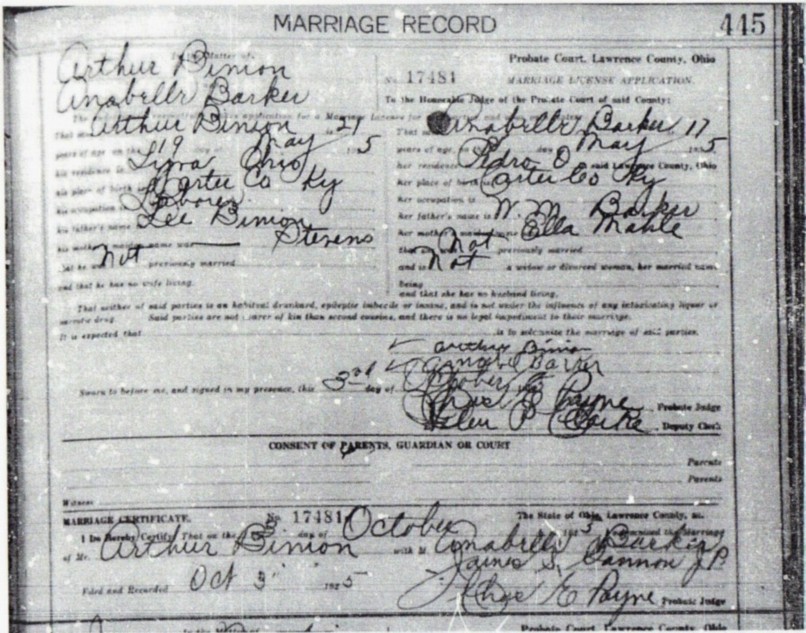 MARRIAGE RECORD 445
In the Matter of,
Arthur Binion
Anabelle Barker
Probate Court, Lawrence County, Ohio
No. 17481 MARRIAGE LICENSE APPLICATION.
To the Honorable Judge of the Probate Court of said County:
Arthur Binion 21
years of age on the 19 day of May 5
his residence is Ohio
his place of birth is Carter Co Ky
his occupation is Laborer
his father's name is Lee Binion
his mother's name was Stevens
that he was not previously married
and that he has no wife living.
Anabelle Barker 17
years of age on the day of May 5
her residence is Pedro O said Lawrence County, Ohio
her place of birth is Carter Co Ky
her occupation is
her father's name is W. M. Barker
her mother's name Ella Mahle
that Not previously married
and is Not a widow or divorced woman, her married name
being
and that she has no husband living.
That neither of said parties is an habitual drunkard, epileptic imbecile or insane, and is not under the influence of any intoxicating liquor or
narcotic drug. Said parties are not nearer of kin than second cousins, and there is no legal impediment to their marriage.
It is expected that is to solemnize the marriage of said parties.
Arthur Binion
Anabel Barker
Sworn to before me, and signed in my presence, this 3rd day of October
Payne, Probate Judge
Helen P Clarke, Deputy Clerk
CONSENT OF PARENTS, GUARDIAN OR COURT
Parents
Parents
Witness
MARRIAGE CERTIFICATE. No. 17481 The State of Ohio, Lawrence County, ss.
I Do Hereby Certify That on the 3 day of October 5 solemnized the Marriage
of Mr. Arthur Binion with M Anabelle Barker
James S. Cannon J.P.
Filed and Recorded Oct 3 1925
Chas E Payne Probate Judge
In the Matter of Probate Court, Lawrence County, Ohio